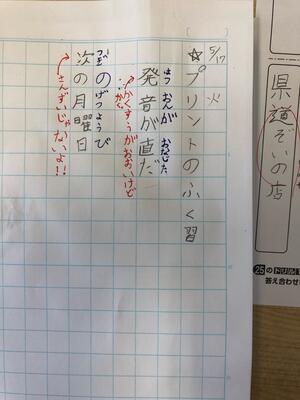 県道ぞいの店
25のドリル
答え合わせ
5/17 火
☆プリントのふく習
はつ おんが おなじだ
発音が直だ
かくすうがおおいけど
つぎ の げつ よう び
次の月曜日
さんずいじゃないよ!!